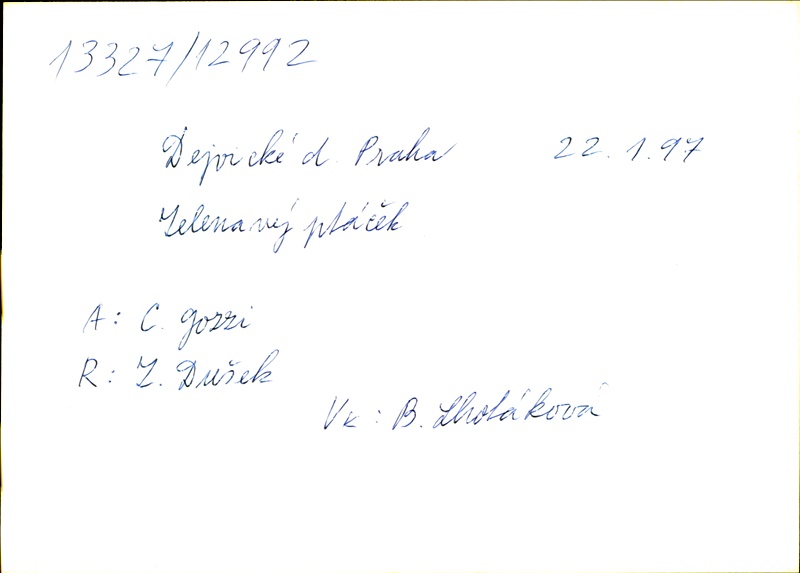 13327/12992
Dejvické d. Praha 22.1.97
Zelenavý ptáček
A: C. Gozzi
R: Z. Dušek
Vk: B. Lhotáková